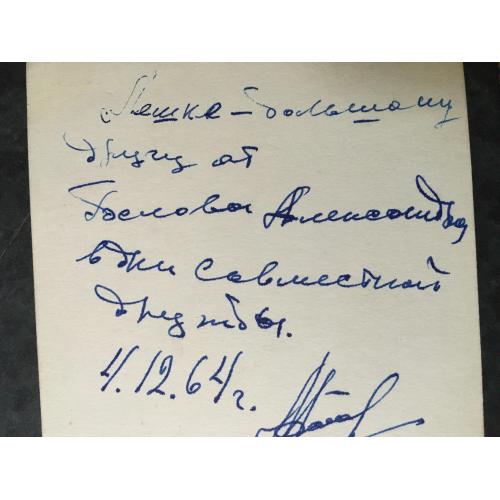 Лешке - большому
другу от
Гослова Александра
в дни совместной
дружбы.
4.12.64 г.